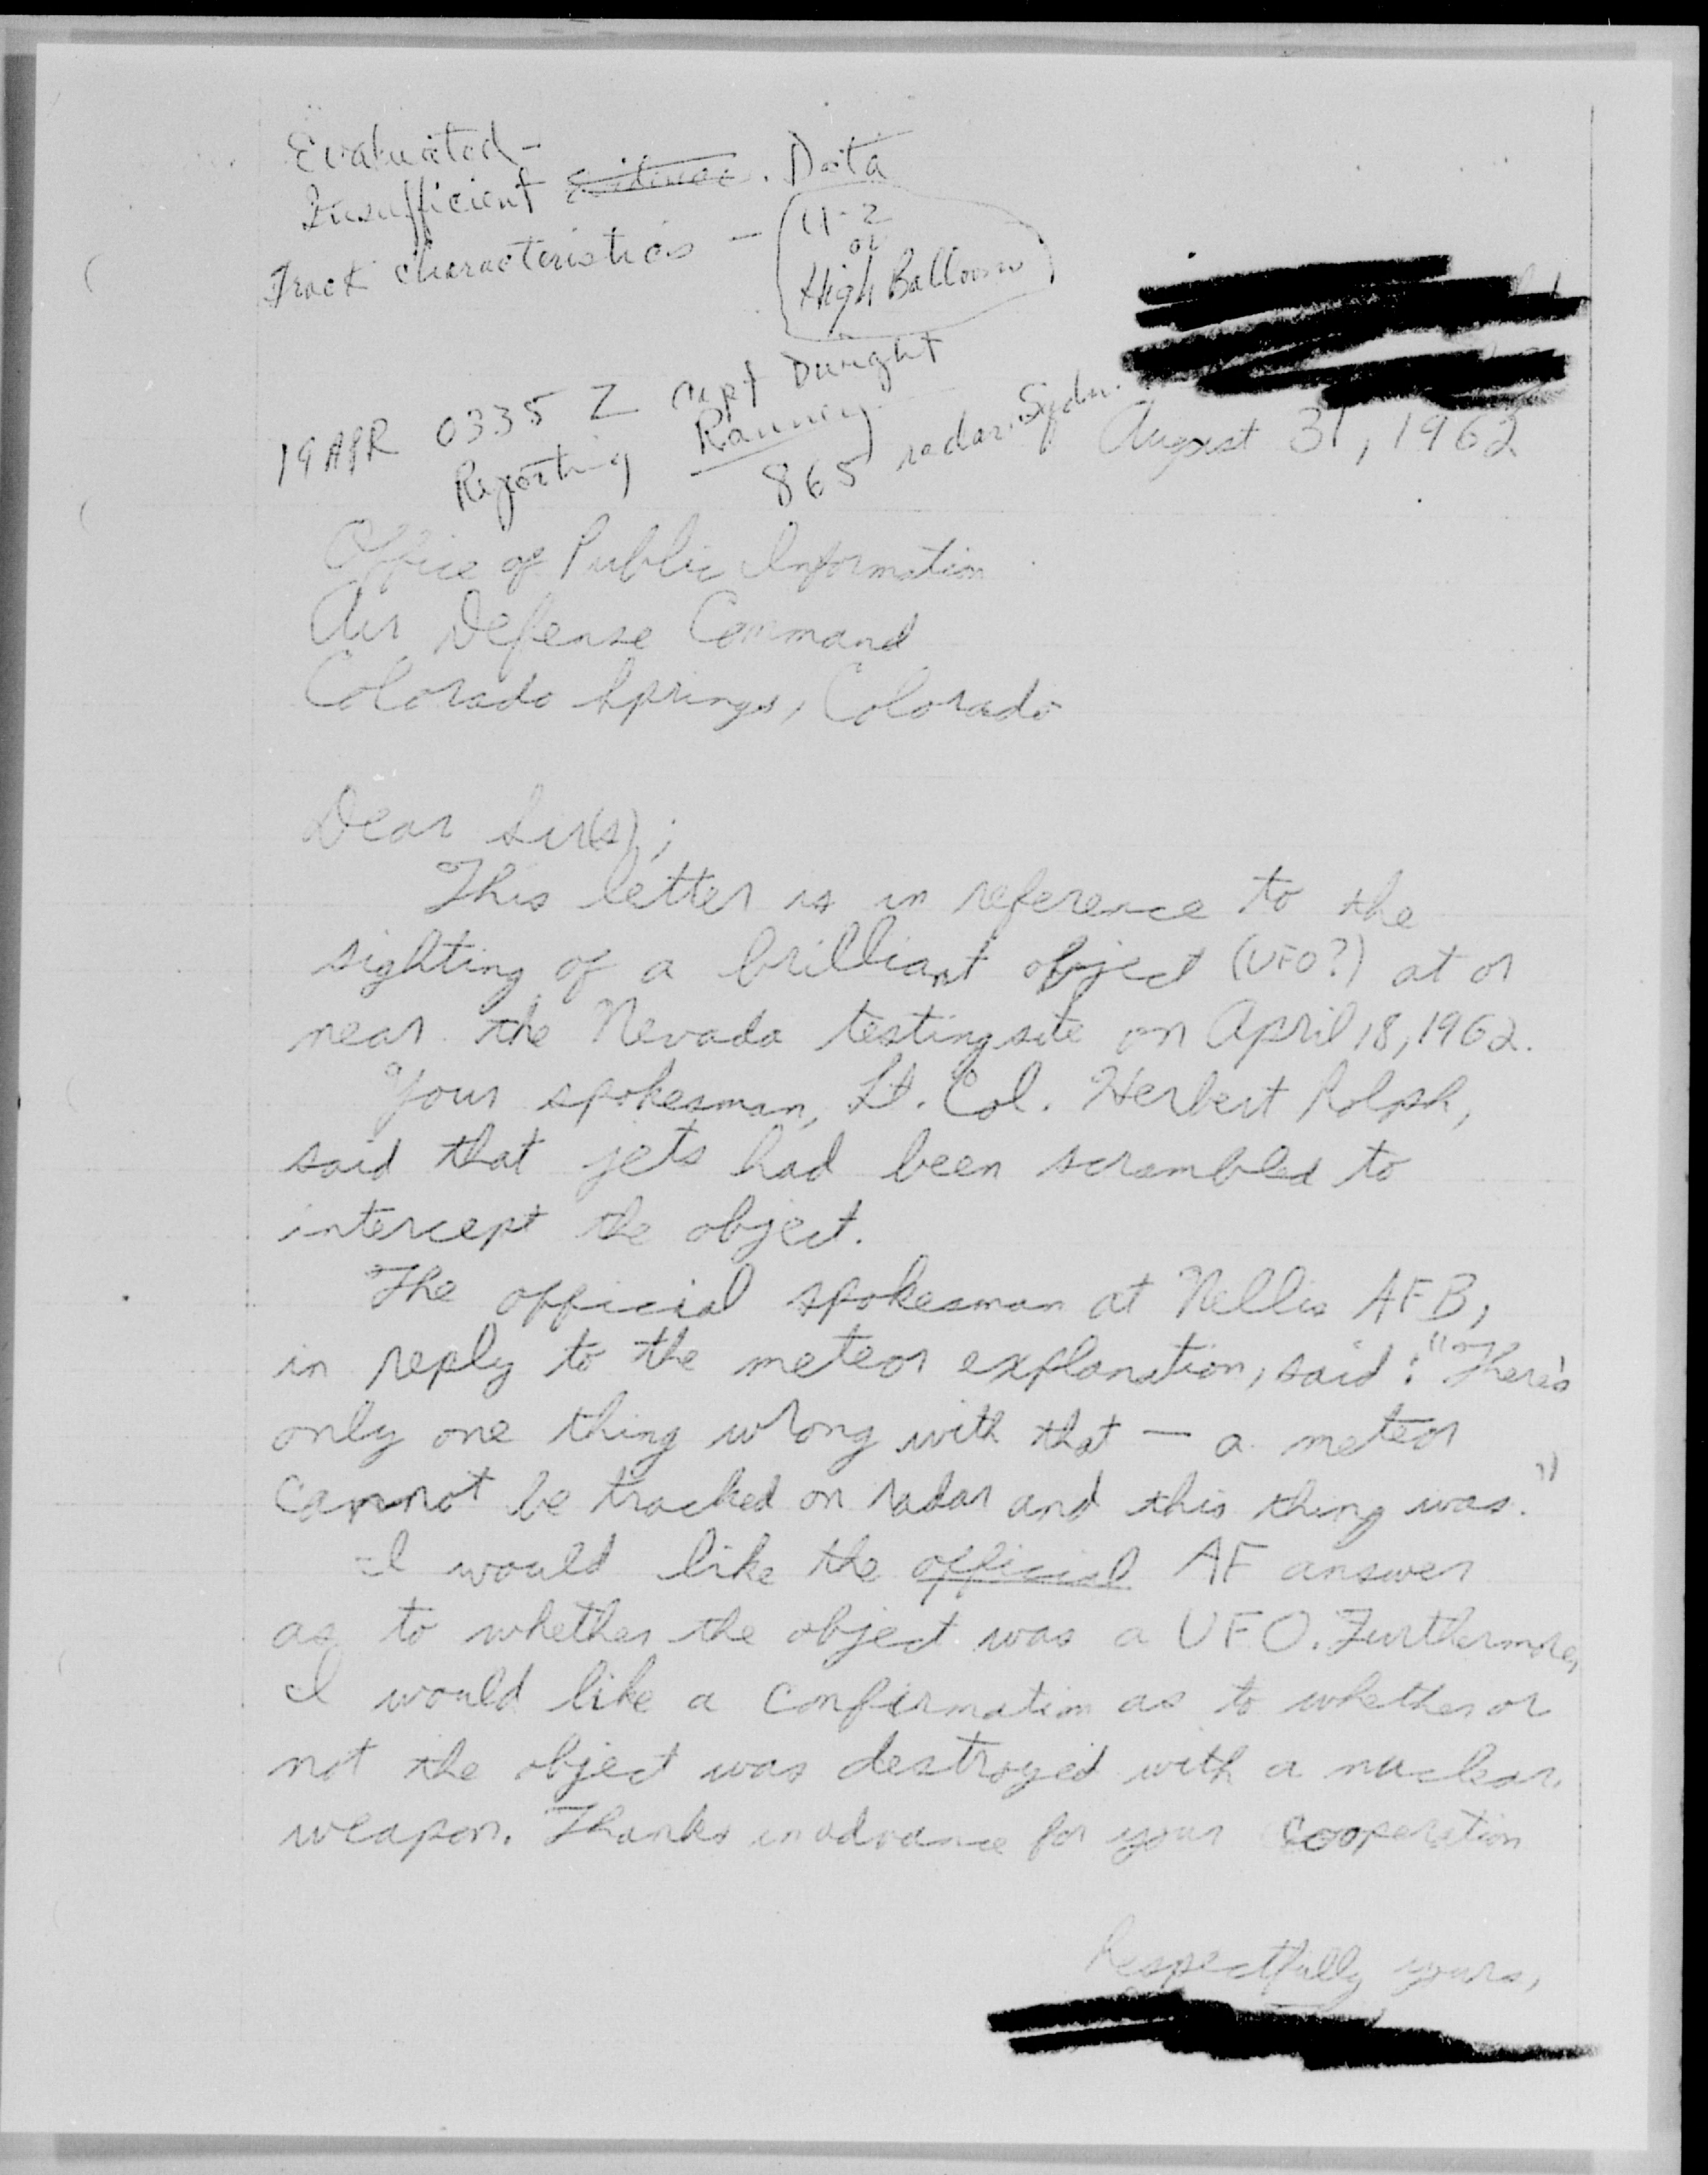 Evaluated -
Insufficient ~~Evidence~~. Data
Track characteristics - U-2
or
High Balloon
19 APR 0335 Z Capt Dwight
Reporting Ranney
865 radar Sqdn.
August 31, 1962
Office of Public Information
Air Defense Command
Colorado Springs, Colorado
Dear Sir(s);
This letter is in reference to the
sighting of a brilliant object (UFO?) at or
near the Nevada testing site on April 18, 1962.
Your spokesman, Lt. Col. Herbert Rolph,
said that jets had been scrambled to
intercept the object.
The official spokesman at Nellis AFB,
in reply to the meteor explanation, said: "There's
only one thing wrong with that — a meteor
cannot be tracked on radar and this thing was."
I would like the official AF answer
as to whether the object was a UFO. Furthermore,
I would like a confirmation as to whether or
not the object was destroyed with a nuclear
weapon. Thanks in advance for your cooperation
Respectfully yours,